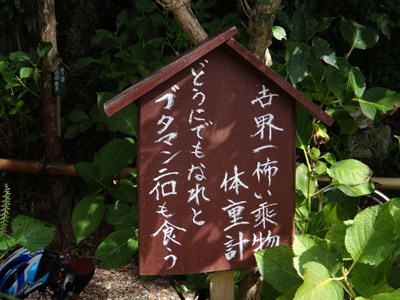 世界一怖い乗物
体重計
どうにでもなれと
ブタマン二口も食う